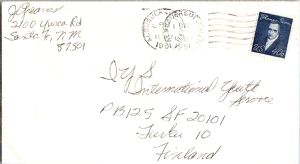 J Graves
2100 Yucca Rd
Santa Fe, N M
87501
1981
Thomas Paine
US 40c
IYS
International Youth
Service
PB 125 SF 20101
Turku 10
Finland